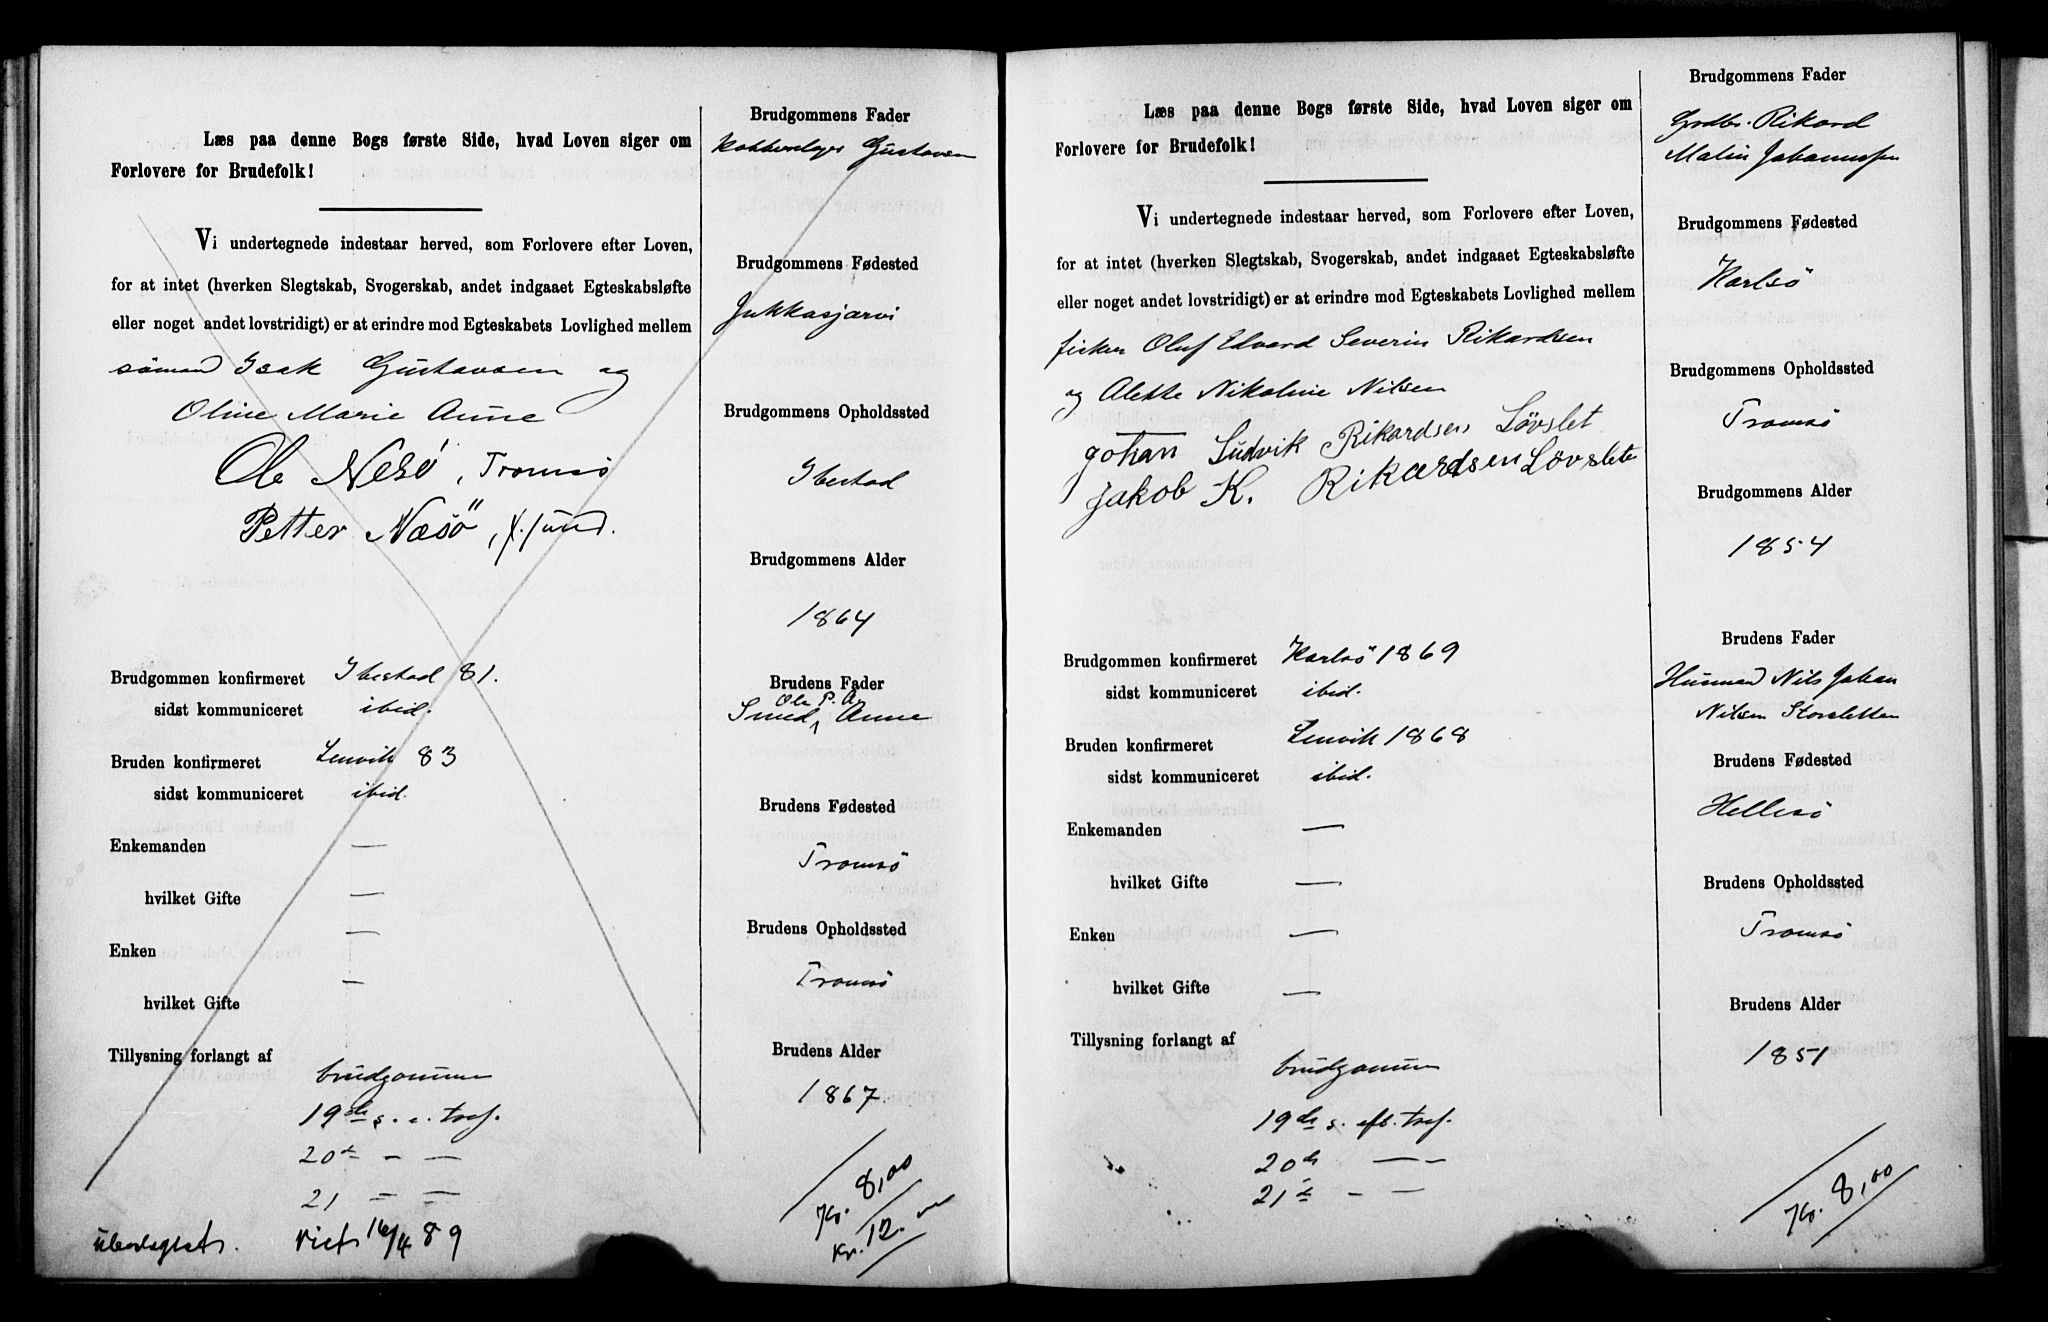 Læs paa denne Bogs første Side, hvad Loven siger om
Forlovere for Brudefolk!
Vi undertegnede indestaar herved, som Forlovere efter Loven,
for at intet (hverken Slegtskab, Svogerskab, andet indgaaet Egteskabsløfte
eller noget andet lovstridigt) er at erindre mod Egteskabets Lovlighed mellem
sömand Isak Gustavsen og
Oline Marie Aune
Ole Nesö, Tromsö
Petter Næsö,
Brudgommen konfirmeret Ibestad 81.
sidst kommuniceret ibid.
Bruden konfirmeret Lenvik 83
sidst kommuniceret ibid.
Enkemanden —
hvilket Gifte —
Enken —
hvilket Gifte —
Tillysning forlangt af
brudgommen
19de s. e. tref.
20de — —
21 — —
viet 16/4 89
Brudgommens Fader
Gustavsen
Brudgommens Fødested
Jukkasjarvi
Brudgommens Opholdssted
Ibestad
Brudgommens Alder
1864
Brudens Fader
Ole P. A.
Smed Aune
Brudens Fødested
Tromsö
Brudens Opholdssted
Tromsö
Brudens Alder
1867
Kr. 8,00
Kr. 12.
Læs paa denne Bogs første Side, hvad Loven siger om
Forlovere for Brudefolk!
Vi undertegnede indestaar herved, som Forlovere efter Loven,
for at intet (hverken Slegtskab, Svogerskab, andet indgaaet Egteskabsløfte
eller noget andet lovstridigt) er at erindre mod Egteskabets Lovlighed mellem
fisker Oluf Edvard Severin Rikardsen
og Alette Nikoline Nilsen
Johan Ludvik Rikardsen Lövslet
Jakob K. Rikardsen Lövslete
Brudgommen konfirmeret Karlsö 1869
sidst kommuniceret ibid.
Bruden konfirmeret Lenvik 1868
sidst kommuniceret ibid.
Enkemanden —
hvilket Gifte —
Enken —
hvilket Gifte —
Tillysning forlangt af
brudgommen
19de s. eft. tref.
20de — —
21de — —
Brudgommens Fader
Grdbr. Rikard
Malin Johannessen
Brudgommens Fødested
Karlsö
Brudgommens Opholdssted
Tromsö
Brudgommens Alder
1854
Brudens Fader
Husmand Nils Johan
Nilsen Storsletten
Brudens Fødested
Hellesö
Brudens Opholdssted
Tromsö
Brudens Alder
1851
Kr. 8,00